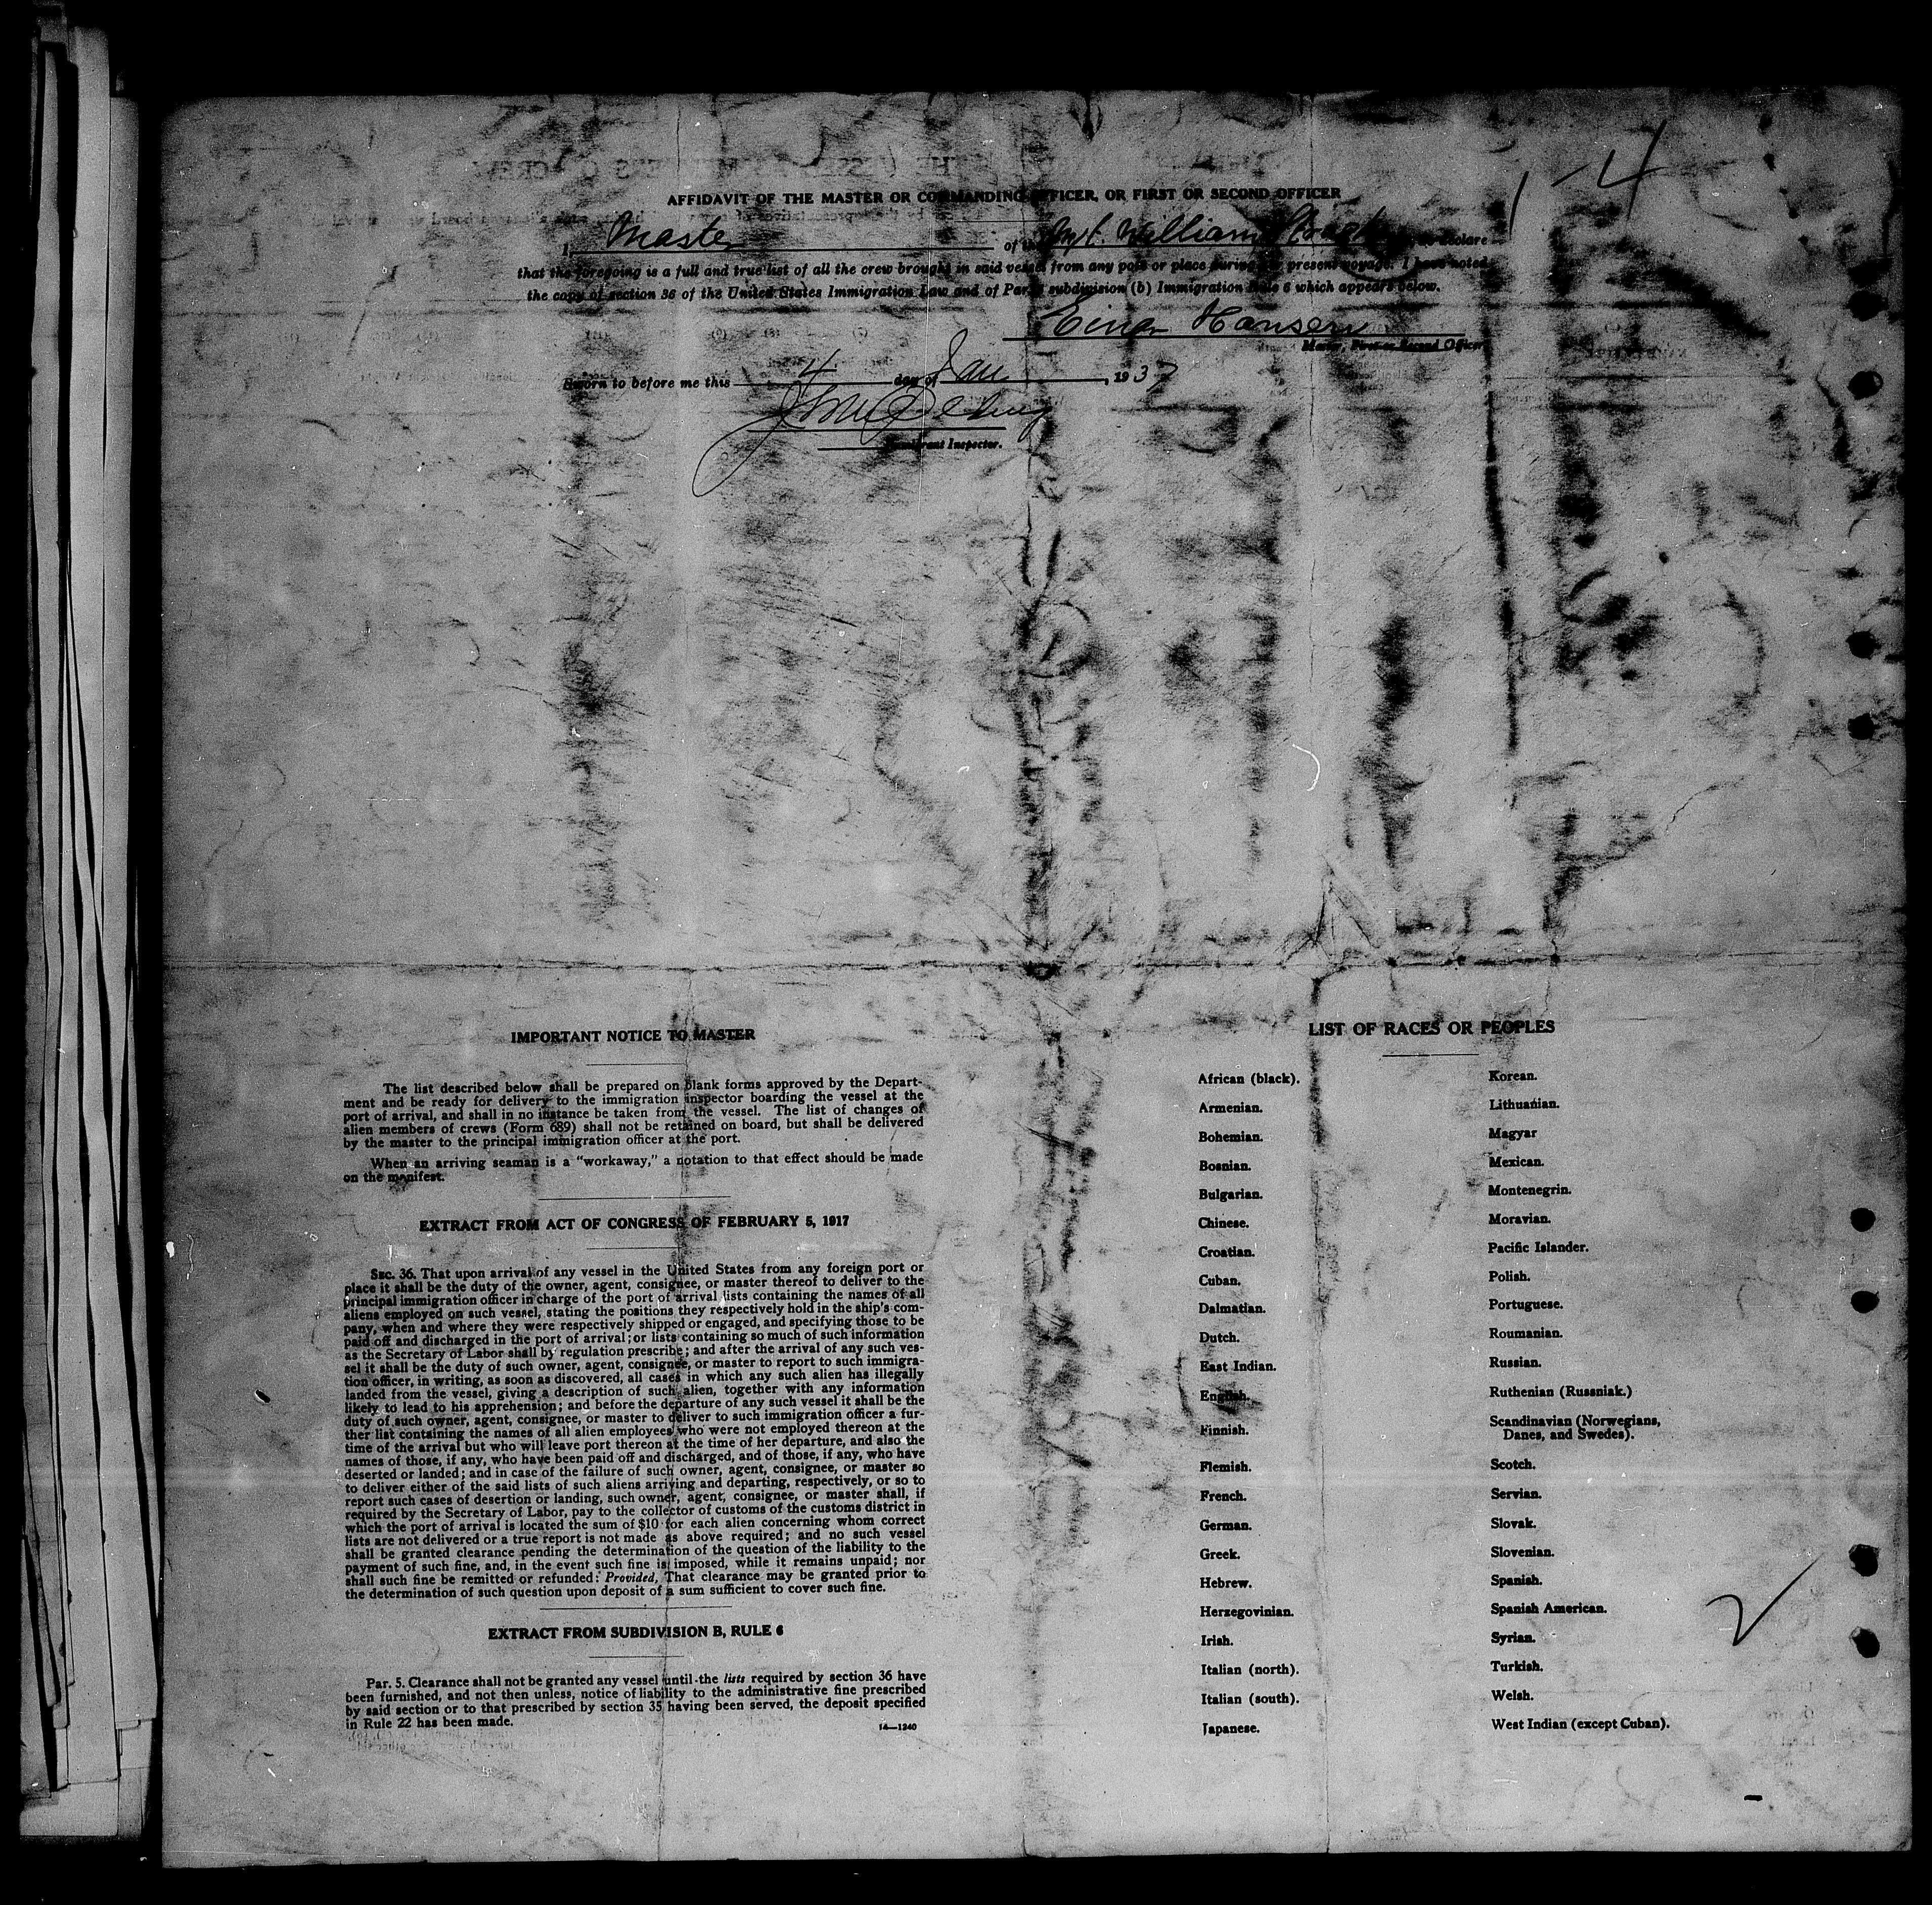 1-4
AFFIDAVIT OF THE MASTER OR COMMANDING OFFICER, OR FIRST OR SECOND OFFICER
I, Master of the M/S. William declare
that the foregoing is a full and true list of all the crew brought in said vessel from any port or place during the present voyage. I have noted
the copy of section 36 of the United States Immigration Law and of Par. subdivision (b) Immigration Rule 6 which appears below.
Einar Hansen
Master, First or Second Officer
Sworn to before me this 4 day of Jan, 1937
Immigrant Inspector.
IMPORTANT NOTICE TO MASTER
The list described below shall be prepared on blank forms approved by the Depart-
ment and be ready for delivery to the immigration inspector boarding the vessel at the
port of arrival, and shall in no instance be taken from the vessel. The list of changes of
alien members of crews (Form 689) shall not be retained on board, but shall be delivered
by the master to the principal immigration officer at the port.
When an arriving seaman is a "workaway," a notation to that effect should be made
on the manifest.
EXTRACT FROM ACT OF CONGRESS OF FEBRUARY 5, 1917
SEC. 36. That upon arrival of any vessel in the United States from any foreign port or
place it shall be the duty of the owner, agent, consignee, or master thereof to deliver to the
principal immigration officer in charge of the port of arrival lists containing the names of all
aliens employed on such vessel, stating the positions they respectively hold in the ship's com-
pany, when and where they were respectively shipped or engaged, and specifying those to be
paid off and discharged in the port of arrival; or lists containing so much of such information
as the Secretary of Labor shall by regulation prescribe; and after the arrival of any such ves-
sel it shall be the duty of such owner, agent, consignee, or master to report to such immigra-
tion officer, in writing, as soon as discovered, all cases in which any such alien has illegally
landed from the vessel, giving a description of such alien, together with any information
likely to lead to his apprehension; and before the departure of any such vessel it shall be the
duty of such owner, agent, consignee, or master to deliver to such immigration officer a fur-
ther list containing the names of all alien employees who were not employed thereon at the
time of the arrival but who will leave port thereon at the time of her departure, and also the
names of those, if any, who have been paid off and discharged, and of those, if any, who have
deserted or landed; and in case of the failure of such owner, agent, consignee, or master so
to deliver either of the said lists of such aliens arriving and departing, respectively, or so to
report such cases of desertion or landing, such owner, agent, consignee, or master shall, if
required by the Secretary of Labor, pay to the collector of customs of the customs district in
which the port of arrival is located the sum of $10 for each alien concerning whom correct
lists are not delivered or a true report is not made as above required; and no such vessel
shall be granted clearance pending the determination of the question of the liability to the
payment of such fine, and, in the event such fine is imposed, while it remains unpaid; nor
shall such fine be remitted or refunded: Provided, That clearance may be granted prior to
the determination of such question upon deposit of a sum sufficient to cover such fine.
EXTRACT FROM SUBDIVISION B, RULE 6
Par. 5. Clearance shall not be granted any vessel until the lists required by section 36 have
been furnished, and not then unless, notice of liability to the administrative fine prescribed
by said section or to that prescribed by section 35 having been served, the deposit specified
in Rule 22 has been made.
14—1240
LIST OF RACES OR PEOPLES
African (black).
Armenian.
Bohemian.
Bosnian.
Bulgarian.
Chinese.
Croatian.
Cuban.
Dalmatian.
Dutch.
East Indian.
English.
Finnish.
Flemish.
French.
German.
Greek.
Hebrew.
Herzegovinian.
Irish.
Italian (north).
Italian (south).
Japanese.
Korean.
Lithuanian.
Magyar
Mexican.
Montenegrin.
Moravian.
Pacific Islander.
Polish.
Portuguese.
Roumanian.
Russian.
Ruthenian (Russniak.)
Scandinavian (Norwegians,
Danes, and Swedes).
Scotch.
Servian.
Slovak.
Slovenian.
Spanish.
Spanish American.
Syrian.
Turkish.
Welsh.
West Indian (except Cuban).